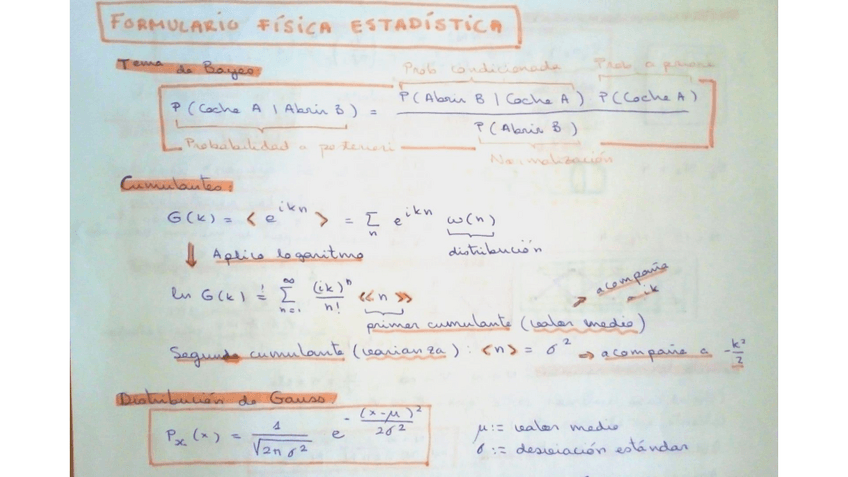 FORMULARIO FÍSICA ESTADÍSTICA
Tema de Bayes
Prob condicionada Prob a priori
P(Coche A | Abrir B) = P(Abrir B | Coche A) P(Coche A) / P(Abrir B)
Probabilidad a posteriori
Normalización
Cumulantes:
G(k) = < e^{ikn} > = Σ_n e^{ikn} ω(n)
distribución
⇓ Aplico logaritmo
ln G(k) = Σ_{n=1}^{∞} (ik)^n / n! <<n>>
→ acompaña
a ik
primer cumulante (valor medio)
Segundo cumulante (varianza): <n> = σ² → acompaña a -k²/2
Distribución de Gauss
P_x(x) = 1/√(2πσ²) e^{-(x-μ)²/2σ²}
μ := valor medio
σ := desviación estándar